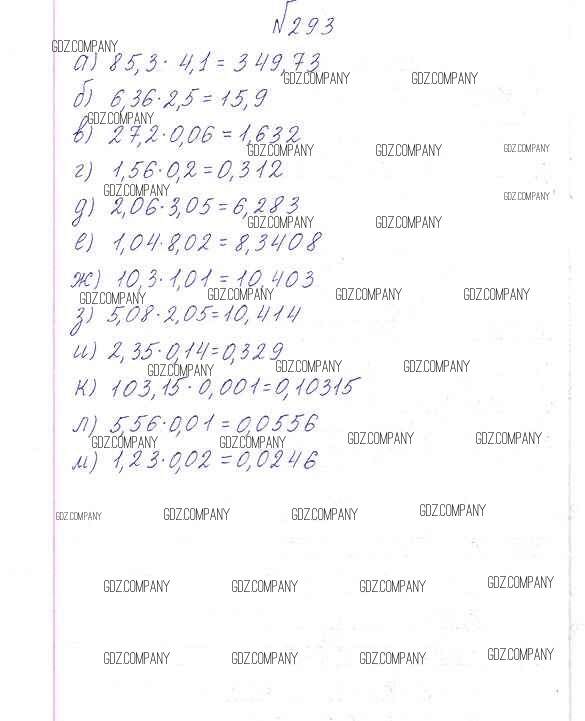 №293
GDZ.COMPANY
а) 85,3 · 4,1 = 349,73
GDZ.COMPANY GDZ.COMPANY
б) 6,36 · 2,5 = 15,9
GDZ.COMPANY
в) 27,2 · 0,06 = 1,632
GDZ.COMPANY GDZ.COMPANY GDZ.COMPANY
г) 1,56 · 0,2 = 0,312
GDZ.COMPANY GDZ.COMPANY
д) 2,06 · 3,05 = 6,283
GDZ.COMPANY GDZ.COMPANY
е) 1,04 · 8,02 = 8,3408
ж) 10,3 · 1,01 = 10,403
GDZ.COMPANY GDZ.COMPANY GDZ.COMPANY GDZ.COMPANY
з) 5,08 · 2,05 = 10,414
и) 2,35 · 0,14 = 0,329
GDZ.COMPANY GDZ.COMPANY GDZ.COMPANY
к) 103,15 · 0,001 = 0,10315
л) 5,56 · 0,01 = 0,0556
GDZ.COMPANY GDZ.COMPANY GDZ.COMPANY GDZ.COMPANY
м) 1,23 · 0,02 = 0,0246
GDZ.COMPANY GDZ.COMPANY GDZ.COMPANY GDZ.COMPANY
GDZ.COMPANY GDZ.COMPANY GDZ.COMPANY GDZ.COMPANY
GDZ.COMPANY GDZ.COMPANY GDZ.COMPANY GDZ.COMPANY